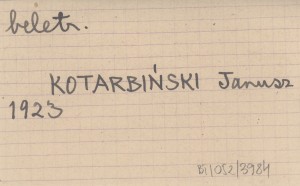 beletr.
KOTARBIŃSKI Janusz
1923
BI/052/3984